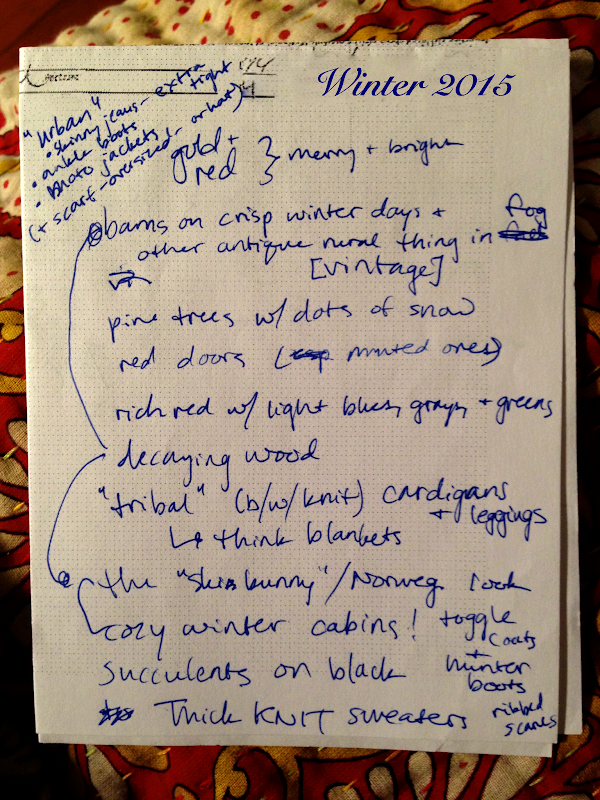 Winter 2015
"urban"
• skinny jeans - extra tight
• ankle boots
• moto jackets
(+ scarf - oversized - or hat)
gold +
red } merry + bright
barns on crisp winter days +
other antique rural thing in fog
[vintage]
pine trees w/ dots of snow
red doors (muted ones)
rich red w/ light blues, grays, + greens
decaying wood
"tribal" (b/w/knit) cardigans
+ leggings
↳ think blankets
the "ski bunny"/Norweg. look
cozy winter cabins! toggle
coats
+
succulents on black hunter
boots
Thick KNIT sweaters ribbed
scarves